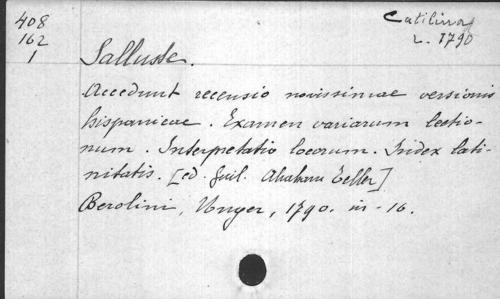 408
162
1
Catilina
L. 1790
Salluste.
Accedunt recensio novissimae versionis
hispanicae. Examen variarum lectio-
num. Interpretatio locorum. Index lati-
nitatis. [ed. Guil. Abraham Teller]
Berolini, Unger, 1790. in-16.